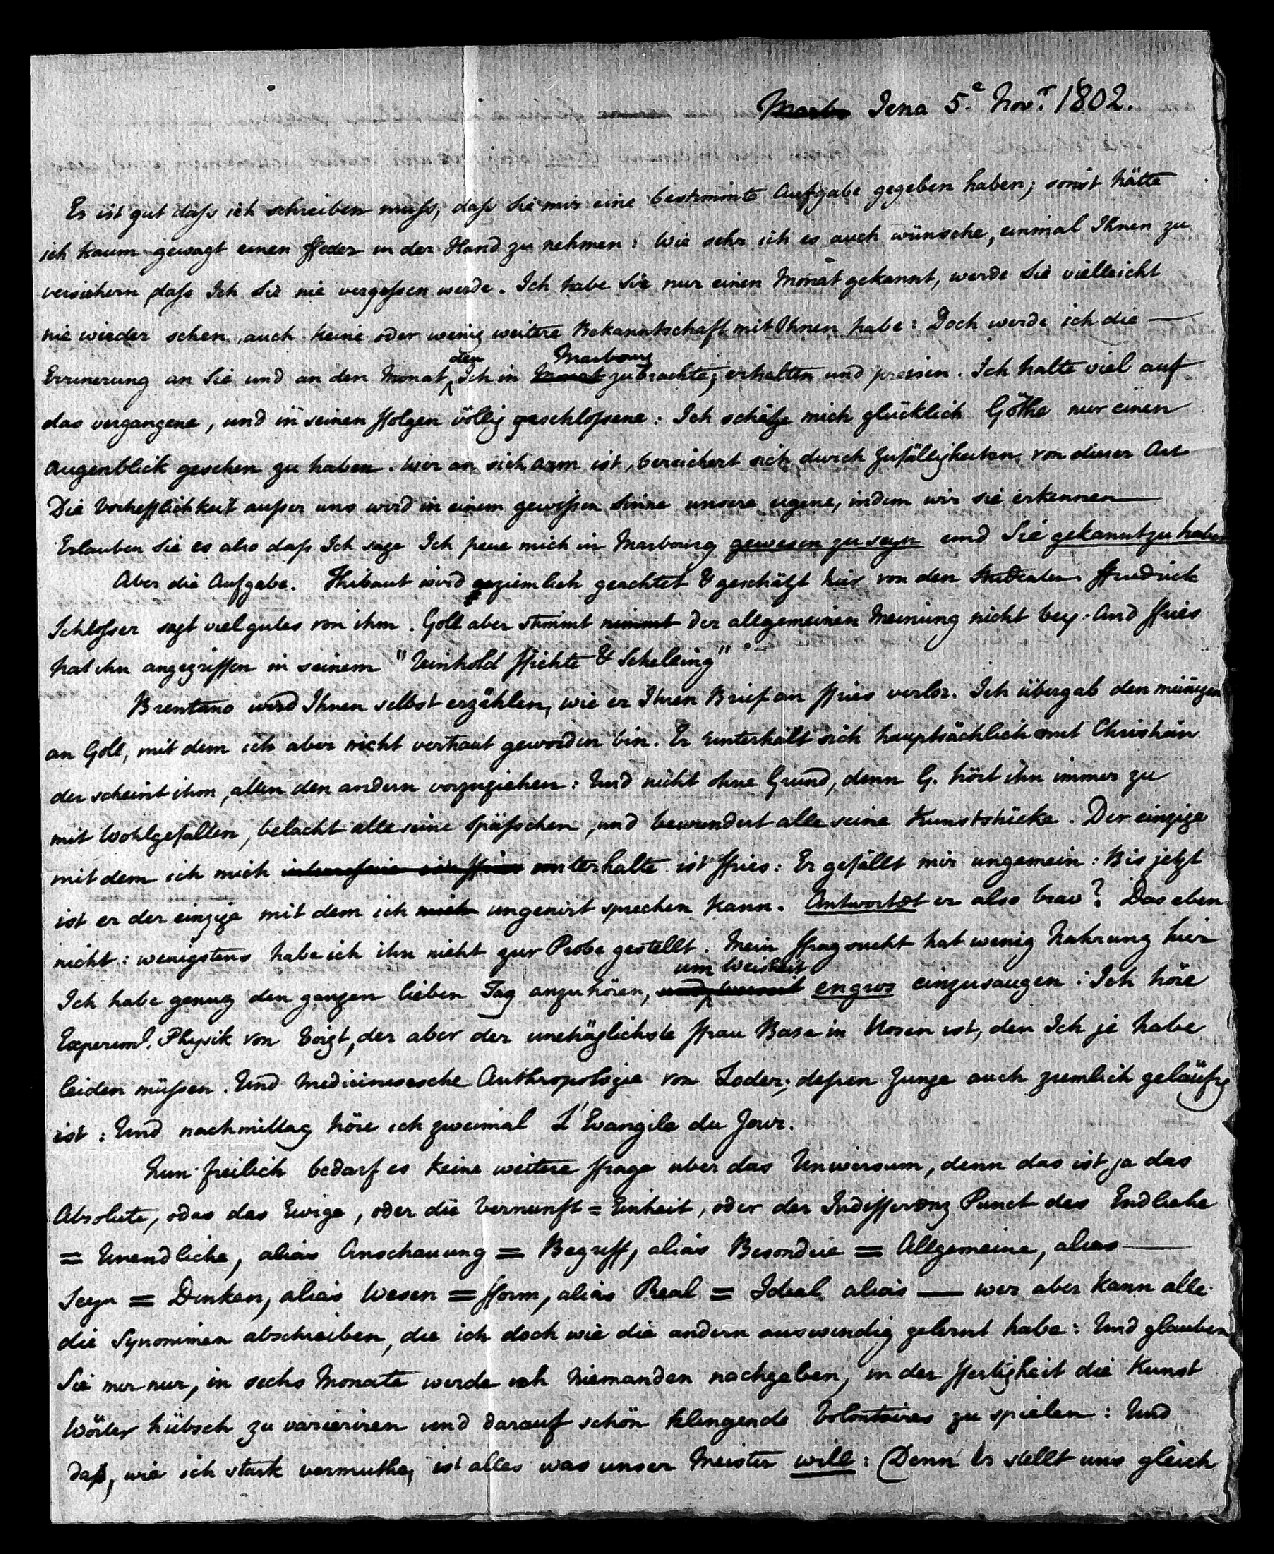 Marb Jena 5.e Novr. 1802.
Es ist gut dass ich schreiben muss, dass Sie mir eine bestimmte Aufgabe gegeben haben; sonst hätte
ich kaum gewagt einen Feder in der Hand zu nehmen: Wie sehr ich es auch wünsche, einmal Ihnen zu
versichern dass Ich Sie nie vergessen werde. Ich habe Sie nur einen Monat gekannt, werde Sie vielleicht
nie wieder sehen, auch keine oder wenig weitere Bekanntschaft mit Ihnen habe: Doch werde ich die —
Errinerung an Sie und an den Monat, den Ich in Monat Marbourg zubrachte, erhalten und preisen. Ich halte viel auf
das vergangene, und in seinen Folgen völlig geschlossene: Ich schätze mich glücklich Göthe nur einen
Augenblick gesehen zu haben. Wer an sich arm ist, bereichert sich durch Zufälligkeiten von dieser Art
Die Vortrefflichkeit ausser uns wird in einem gewissen Sinne unsere eigene, indem wir sie erkennen —
Erlauben Sie es also dass Ich sage Ich freue mich in Marbourg gewesen zu seyn und Sie gekannt zu haben
Aber die Aufgabe. Thibaut wird geziemlich geachtet & geschätzt hier von den Studenten. Friedrich
Schlosser sagt viel gutes von ihm. Goll aber stimmt nimmt der allgemeinen Meinung nicht bey. And Fries
hat ihn angegriffen in seinem "Reinhold Fichte & Schelling"
Brentano wird Ihnen selbst erzählen, wie er Ihren Brief an Fries verlor. Ich übergab den meinigen
an Goll, mit dem ich aber nicht vertraut geworden bin. Er unterhält sich hauptsächlich mit Christian
der scheint ihm, allen den andern vorzuziehen: Und nicht ohne Grund, denn G. hört ihn immer zu
mit Wohlgefallen, belacht alle seine Spässchen, und bewundert alle seine Kunststücke. Der einzige
mit dem ich mich unterhalte ist Fries: Er gefällt mir ungemein: Bis jetzt
ist er der einzige mit dem ich mich ungenirt sprechen kann. Antwortet er also brav? Das eben
nicht: wenigstens habe ich ihn nicht zur Probe gestellt. Mein Fragsucht hat wenig Nahrung hier
Ich habe genug den ganzen lieben Tag anzuhören, um Weisheit engros einzusaugen: Ich höre
Experiml. Physik von Voigt, der aber der unerträglichste Frau Base in Hosen ist, den Ich je habe
leiden müssen. Und Medicinische Anthropologie von Loder; dessen Zunge auch ziemlich geläufig
ist: Und nachmittag höre ich zweimal L'Evangile du Jour.
Nun freilich bedarf es keine weitere Frage uber das Universum, denn das ist ja das
Absolute, oder das Ewige, oder die Vernunft = Einheit, oder der Indifferenz Punct des Endliche
= Unendliche, alias Anschauung = Begriff, alias Besondere = Allgemeine, alias —
Seyn = Denken, alias Wesen = Form, alias Real = Ideal alias — wer aber kann alle
die Synonimen abschreiben, die ich doch wie die andern auswendig gelernt habe: Und glauben
Sie mir nur, in sechs Monate werde ich Niemanden nachgeben, in der Fertigkeit die Kunst
Wörter hübsch zu varieriren und darauf schön klingende Volontaires zu spielen: Und
dass, wie ich stark vermuthe, ist alles was unser Meister will: (Denn Er stellt uns gleich